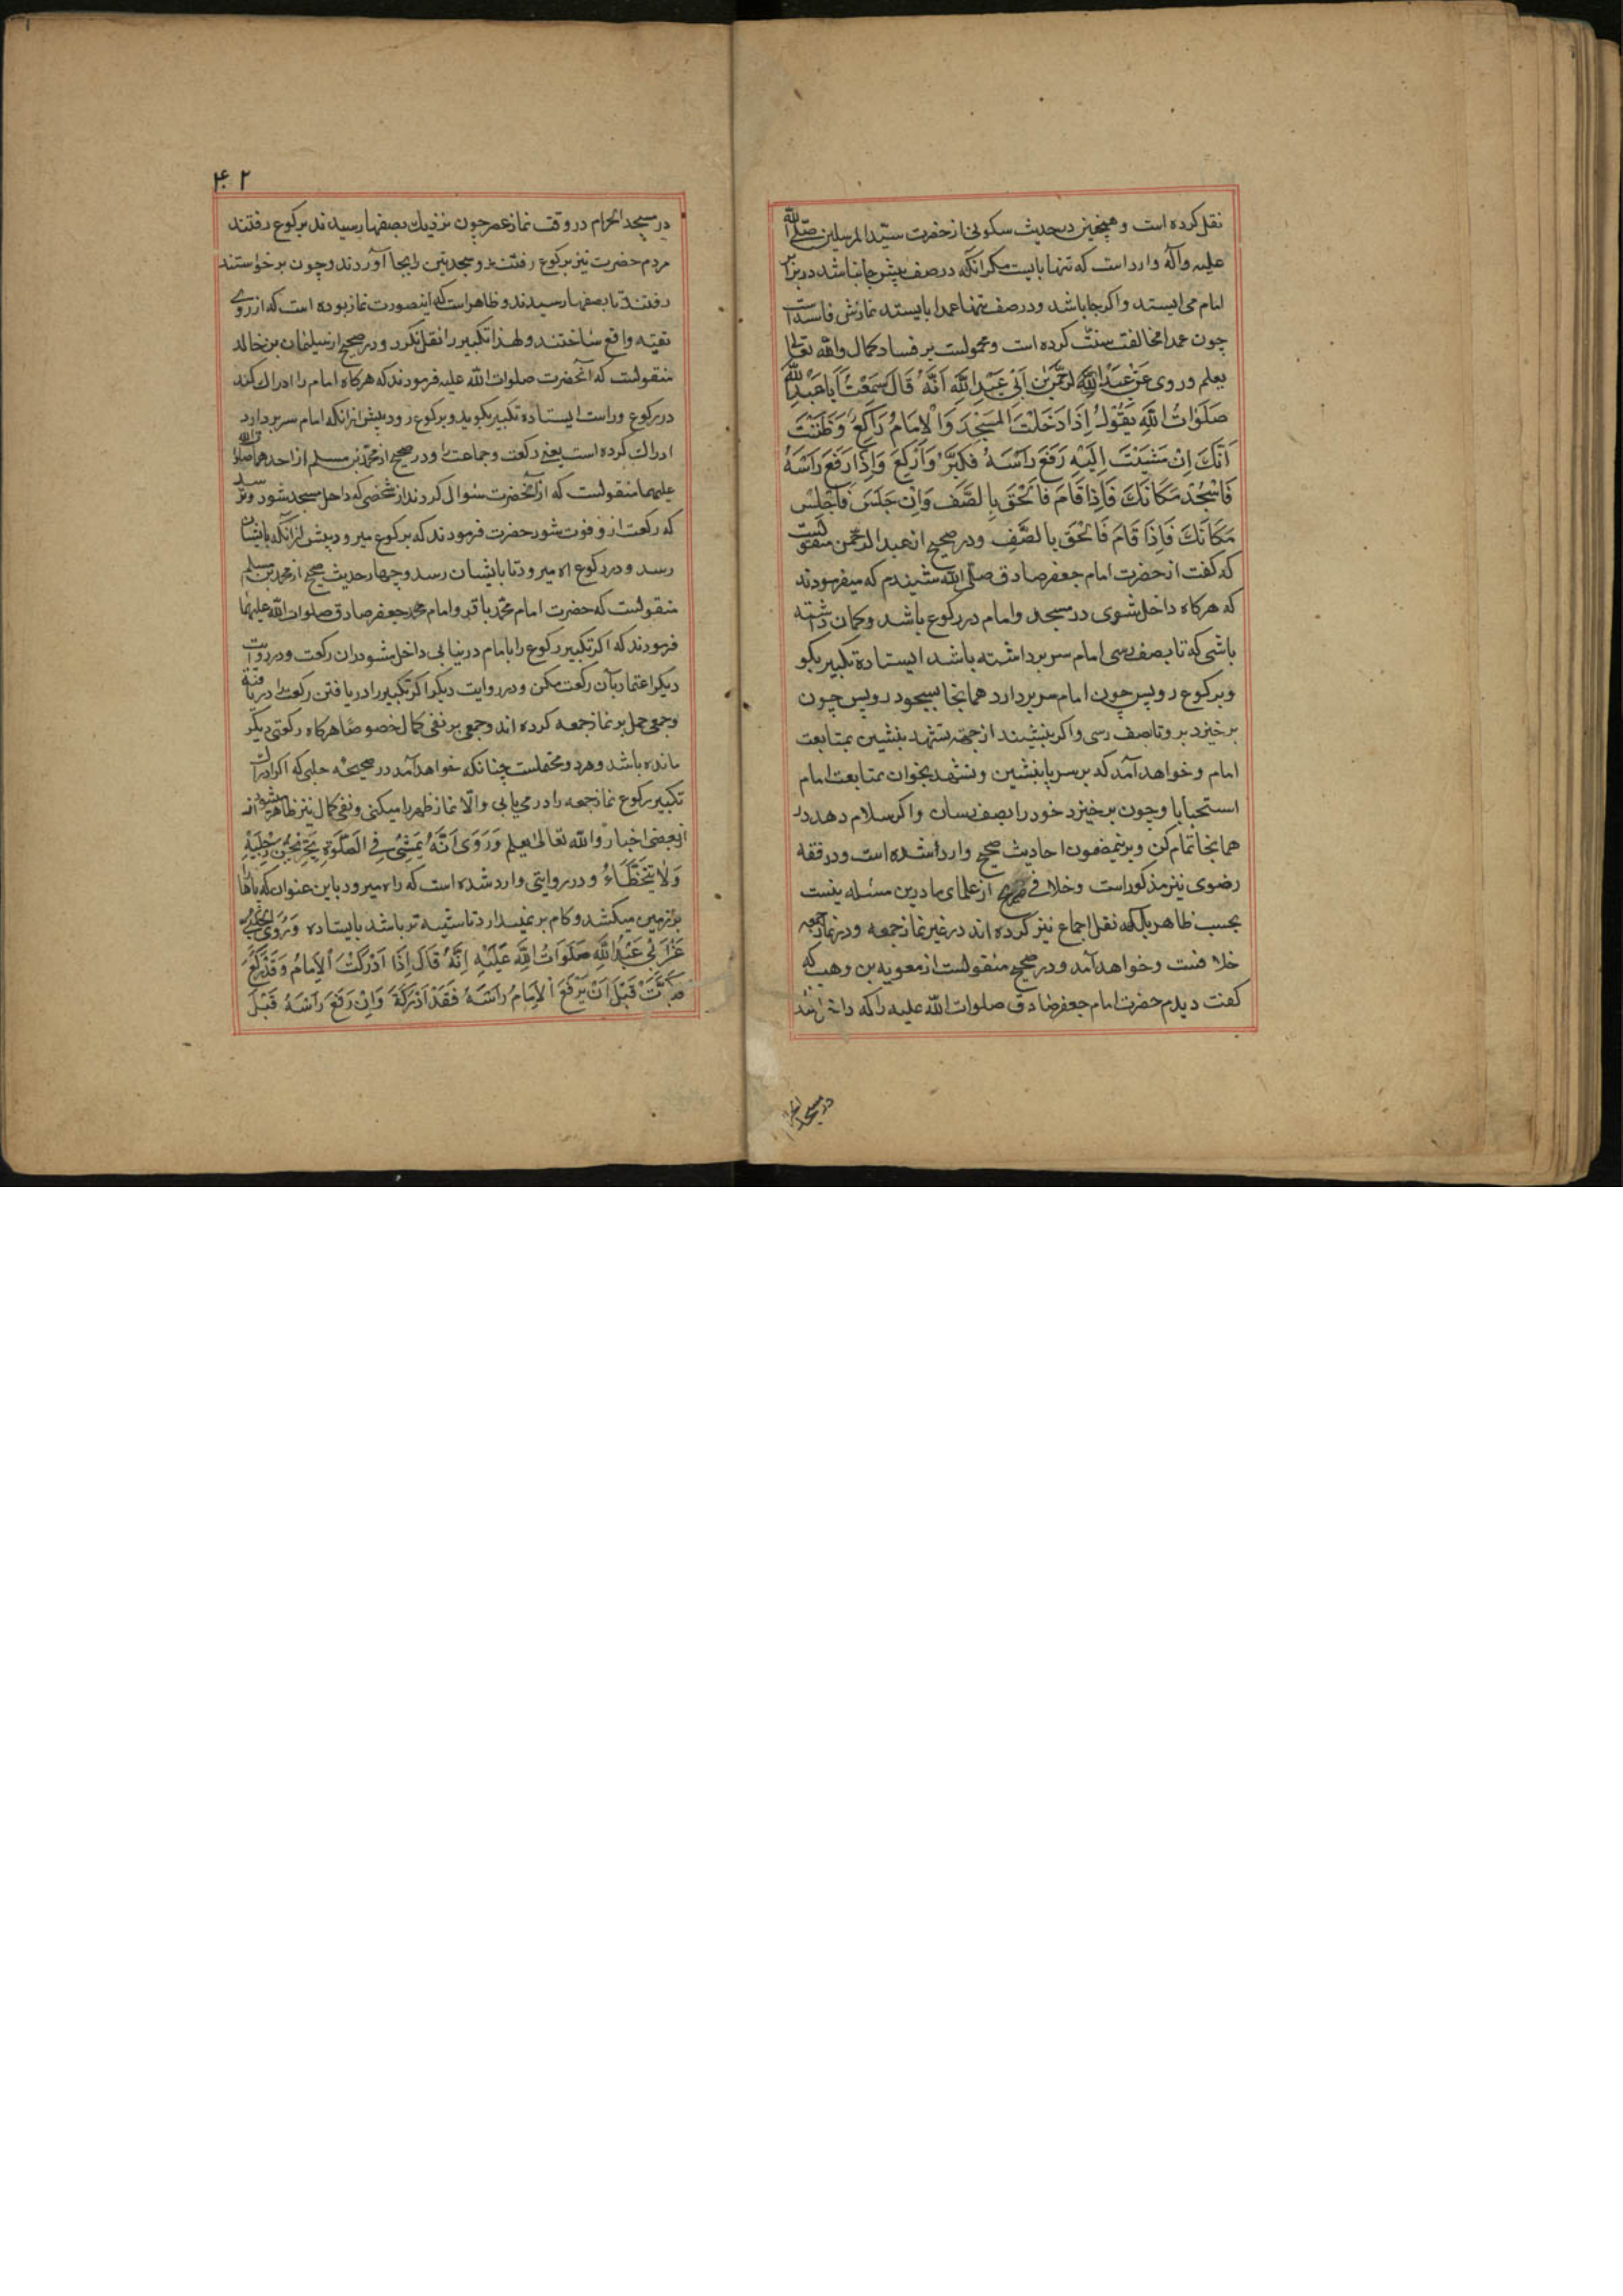 نقل کرده است و همچنین در حدیث سکونی از حضرت سید المرسلین صلی الله
علیه و آله وارد است که تنها بایست مکر آنکه در صف پیش جا نباشد در برابر
امام می ایستد و اکر جا باشد و در صف تنها عمدا بایستد نمازش فاسد است
چون عمدا مخالفت سنت کرده است و محمولست بر فساد کمال والله تعالی
یعلم وروی عَنْ عَبْدِ الرَّحْمٰنِ بْنِ اَبی عَبْدِ اللَّهِ اَنَّهُ قَالَ سَمِعْتُ اَبَا عَبْدِ اللَّهِ
صَلَوٰاتُ اللَّهِ یَقُولُ اِذَا دَخَلْتَ الْمَسْجِدَ وَالْاِمَامُ رَاکِعٌ وَظَنَنْتَ
اَنَّکَ اِنْ مَشَیْتَ اِلَیْهِ رَفَعَ رَاْسَهُ فَکَبِّرْ وَارْکَعْ وَاِذَا رَفَعَ رَاْسَهُ
فَاسْجُدْ مَکَانَکَ فَاِذَا قَامَ فَالْحَقْ بِالصَّفِ وَاِنْ جَلَسَ فَاجْلِسْ
مَکَانَکَ فَاِذَا قَامَ فَالْحَقْ بِالصَّفِ ودر صحیح از عبد الرحمن منقولست
که کفت از حضرت امام جعفر صادق صلی الله شنیدم که میفرمودند
که هرکاه داخل شوی در مسجد و امام در رکوع باشد و کمان داشته
باشی که تا بصف رسی امام سر برداشته باشد ایستاده تکبیر بکو
و برکوع رو پس چون امام سر بردارد همانجا بسجود رو پس چون
برخیزد برو تا بصف رسی و اکر بنشیند از جهة تشهد بنشین بمتابعت
امام و خواهد آمد که بر سر پا بنشین و تشهد بخوان بمتابعت امام
استحبابا و چون برخیزد خود را بصف رسان و اکر سلام دهد در
همانجا تمام کن و برینمضمون احادیث صحیح وارد شده است و در فقه
رضوی نیز مذکور است و خلافی از علمای ما درین مسئله نیست
بحسب ظاهر بلکه نقل اجماع نیز کرده اند در غیر نماز جمعه و در نماز جمعه
خلافست و خواهد آمد و در صحیح منقولست از معویه بن وهب که
کفت دیدم حضرت امام جعفر صادق صلوات الله علیه را که داخل شد
در مسجد
۴۰۲
در مسجد الحرام در وقت نماز عصر چون نزدیک بصفها رسیدند برکوع رفتند
مردم حضرت نیز برکوع رفتند و سجدتین را بجا آوردند و چون برخواستند
رفتند تا بصفها رسیدند و ظاهر است که اینصورت نماز بوده است که از روی
تقیه واقع ساختند و لهذا تکبیر را نقل نکرد و در صحیح از سلیمان بن خالد
منقولست که آنحضرت صلوات الله علیه فرمودند که هرکاه امام را ادراک کند
در رکوع و راست ایستاده تکبیر بکوید و برکوع رود پیش از آنکه امام سر بردارد
ادراک کرده است یعنی رکعت و جماعت را و در صحیح از محمد بن مسلم از احدهما صلوات الله
علیهما منقولست که از آنحضرت سئوال کردند از شخصی که داخل مسجد شود و ترسد
که رکعت از و فوت شود حضرت فرمودند که برکوع میرود پیش از آنکه بایشان
رسد و در رکوع راه میرود تا بایشان رسد و چهار حدیث صحیح از محمد بن مسلم
منقولست که حضرت امام محمد باقر و امام جعفر صادق صلوات الله علیهما
فرمودند که اکر تکبیر رکوع را با امام در نیابی داخل مشو در ان رکعت و در روایت
دیکر اعتماد بآن رکعت مکن و در روایت دیکر اکر تکبیر را دریافتن رکعت را دریافته
و جمعی حمل بر نماز جمعه کرده اند و جمعی بر نفی کمال خصوصا هرکاه رکعتی دیکر
مانده باشد و هر دو محتملست چنانکه خواهد آمد در صحیحه حلبی که اکر ادراک
تکبیر رکوع نماز جمعه را در می یابی و الا نماز ظهر را میکنی و نفی کمال نیز ظاهر میشود از
از بعضی اخبار والله تعالی یعلم وَرَوَی اَنَّهُ یَمْشِی فِی الصَّلٰوةِ یَجُرُّ رِجْلَیْهِ
وَلٰا یَتَخَطَّاءُ و در روایتی وارد شده است که راه میرود باین عنوان که پاها
بر زمین میکشد و کام بر نمیدارد تا شبیه تر باشد بایستاده وَرَوَی الْحَلَبِیُّ
عَنْ اَبی عَبْدِ اللَّهِ صَلَوٰاتُ اللَّهِ عَلَیْهِ اِنَّهُ قَالَ اِذَا اَدْرَکْتَ الْاِمَامَ وَقَدْ رَکَعَ
فَکَبَّرْتَ قَبْلَ اَنْ یَرْفَعَ الْاِمَامُ رَاْسَهُ فَقَدْ اَدْرَکْتَ وَاِنْ رَفَعَ رَاْسَهُ قَبْلَ